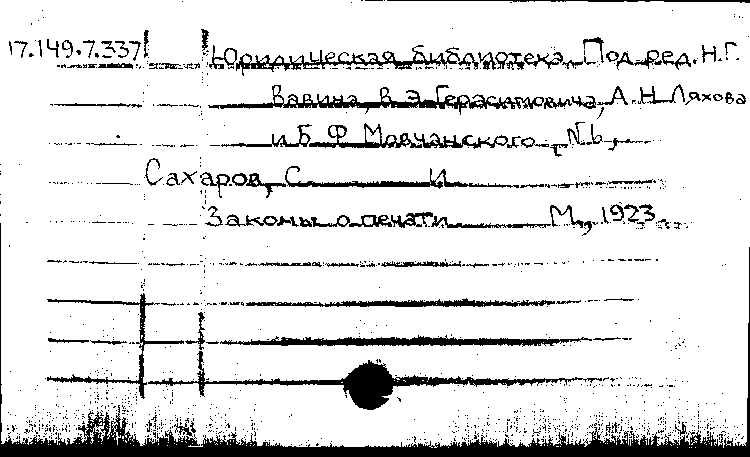 17.149.7.337 Юридическая библиотека. Под ред. Н.Г.
Вавина, В.Э. Герасимовича, А.Н. Ляхова
и Б.Ф. Мовчанского,
Сахаров, С. И
Законы о печати М., 1923.